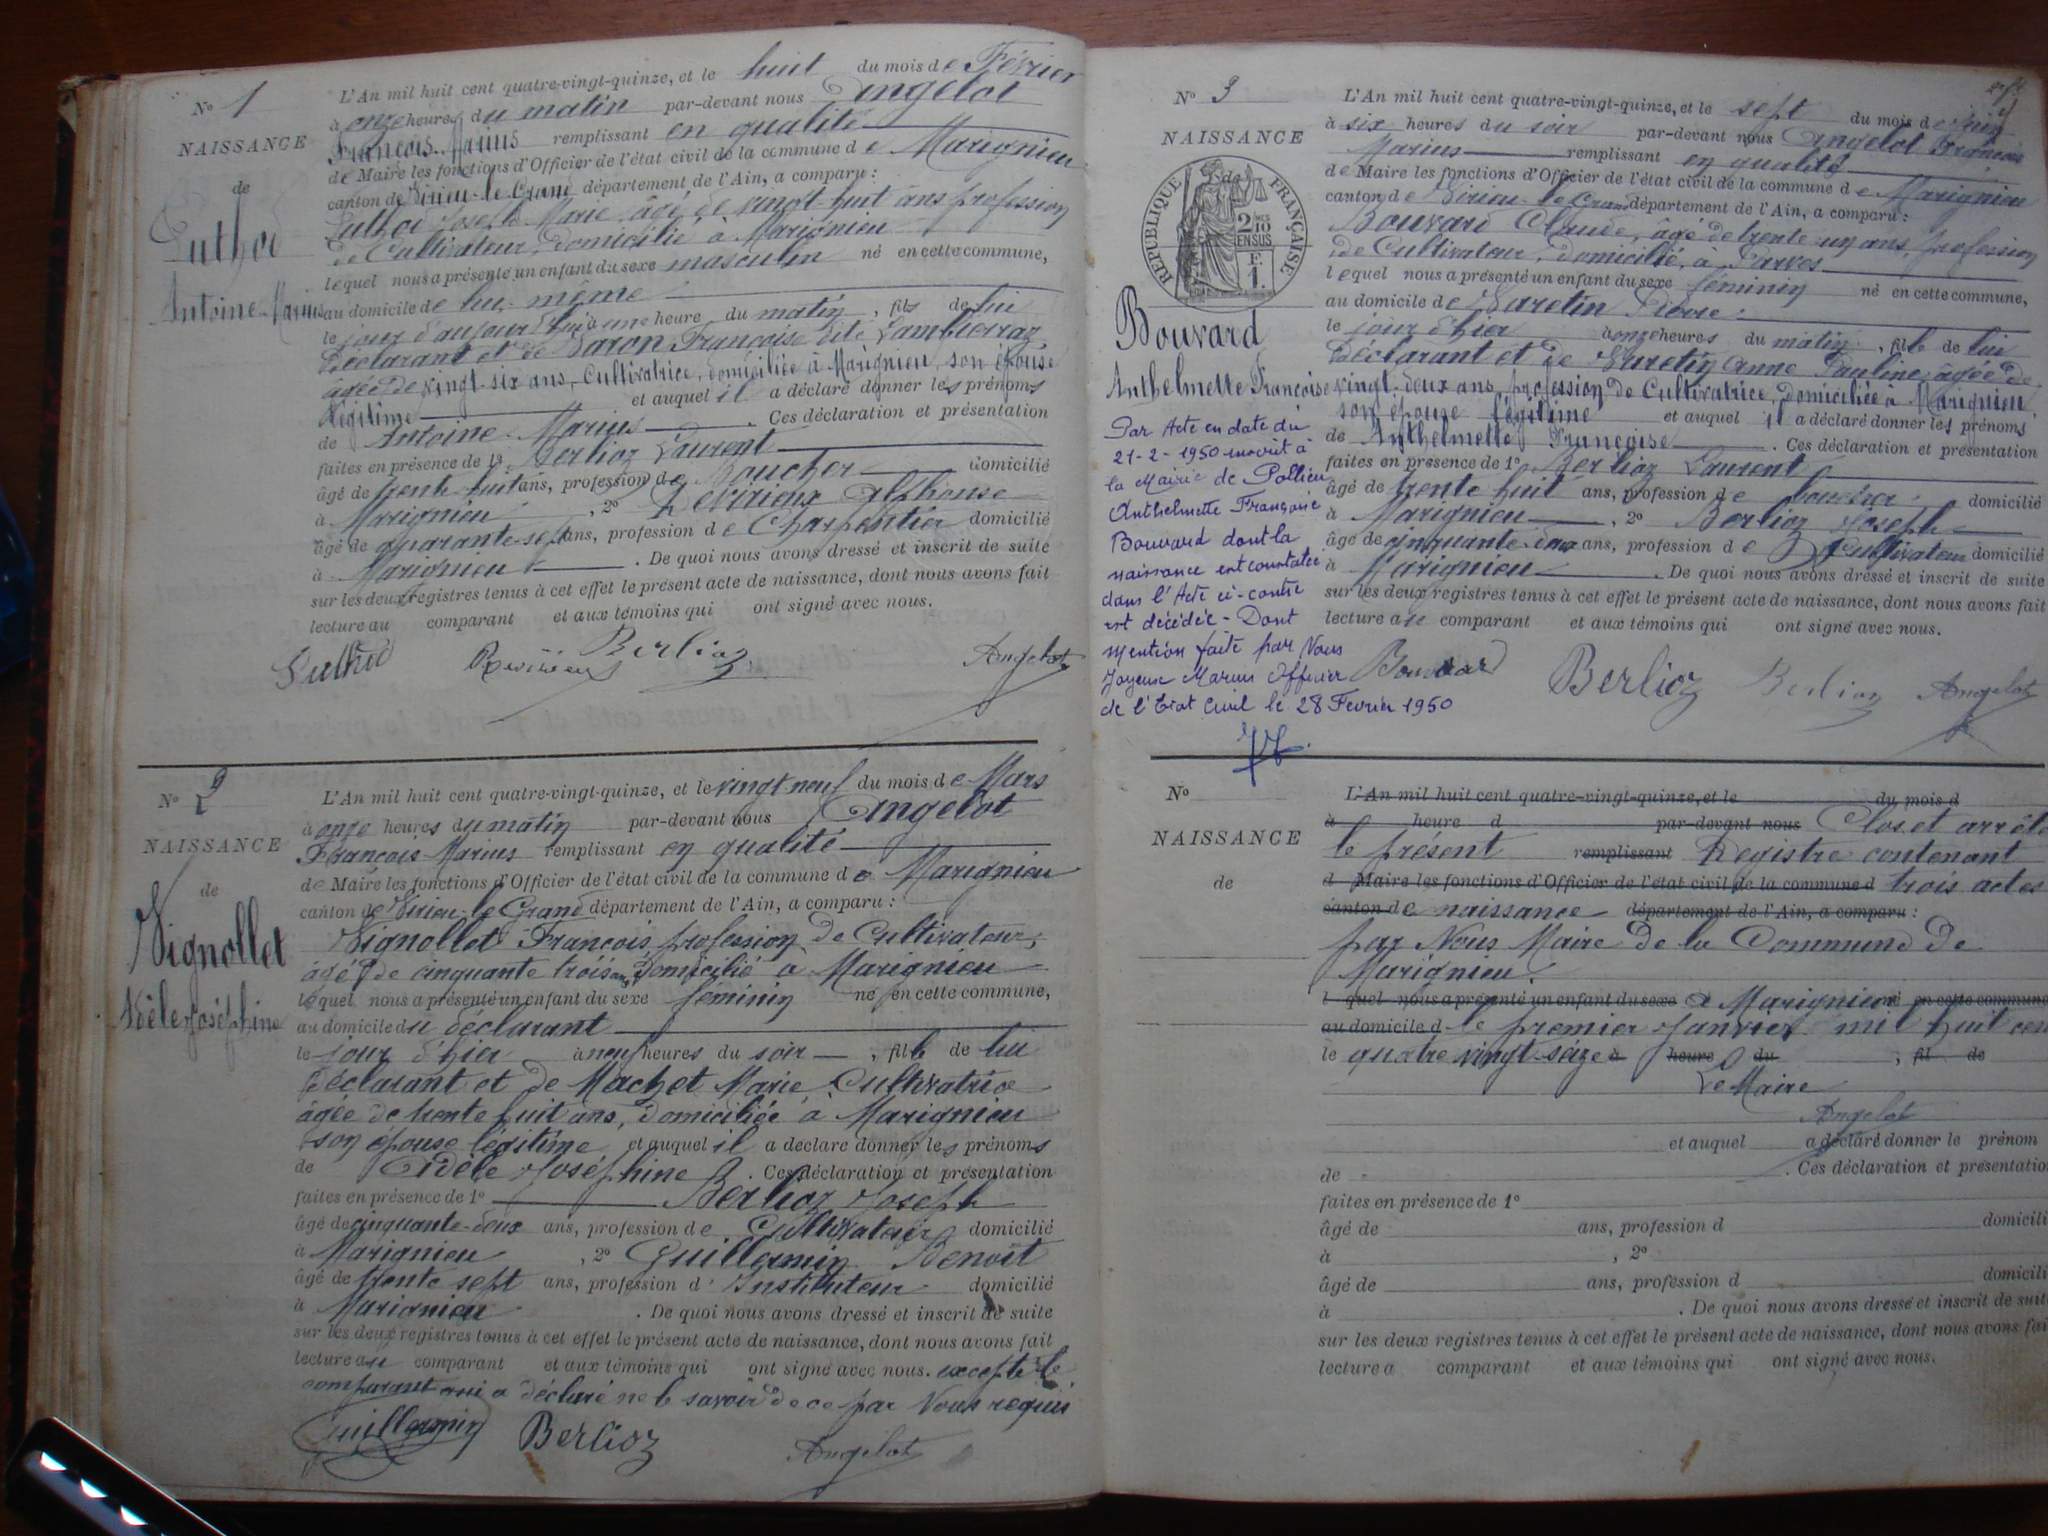 N° 1
NAISSANCE
de
Luthod
Antoine-Marius
L'An mil huit cent quatre-vingt-quinze, et le huit du mois de Février
à onze heures du matin par-devant nous Angelot
François-Marius remplissant en qualité
de Maire les fonctions d'Officier de l'état civil de la commune de Marignieu
canton de Virieu-le-Grand département de l'Ain, a comparu :
Luthod Joseph Marie âgé de vingt-huit ans profession
de Cultivateur, domicilié à Marignieu
lequel nous a présenté un enfant du sexe masculin né en cette commune,
au domicile de lui-même
le jour d'aujourd'hui à une heure du matin, fils de lui
déclarant et de Françoise dite
âgée de vingt-six ans, Cultivatrice, domiciliée à Marignieu, son épouse
légitime et auquel il a déclaré donner les prénoms
de Antoine-Marius. Ces déclaration et présentation
faites en présence de 1° Berlioz Laurent
âgé de trente huit ans, profession de Boucher domicilié
à Marignieu, 2° Revirieux Alphonse
âgé de quarante-sept ans, profession de Charpentier domicilié
à Marignieu. De quoi nous avons dressé et inscrit de suite
sur les deux registres tenus à cet effet le présent acte de naissance, dont nous avons fait
lecture au comparant et aux témoins qui ont signé avec nous.
Luthod Revirieux Berlioz Angelot
N° 2
NAISSANCE
de
Vignollet
Adèle Joséphine
L'An mil huit cent quatre-vingt-quinze, et le vingt-neuf du mois de Mars
à onze heures du matin par-devant nous Angelot
François-Marius remplissant en qualité
de Maire les fonctions d'Officier de l'état civil de la commune de Marignieu
canton de Virieu-le-Grand département de l'Ain, a comparu :
Vignollet François, profession de Cultivateur,
âgé de cinquante trois ans, domicilié à Marignieu
lequel nous a présenté un enfant du sexe féminin né en cette commune,
au domicile du déclarant
le jour d'hier à neuf heures du soir, fille de lui
déclarant et de Machet Marie Cultivatrice
âgée de trente huit ans, domiciliée à Marignieu
son épouse légitime et auquel il a déclaré donner les prénoms
de Adèle Joséphine. Ces déclaration et présentation
faites en présence de 1° Berlioz Joseph
âgé de cinquante-deux ans, profession de Cultivateur domicilié
à Marignieu, 2° Guillermin Benoît
âgé de trente sept ans, profession d'Instituteur domicilié
à Marignieu. De quoi nous avons dressé et inscrit de suite
sur les deux registres tenus à cet effet le présent acte de naissance, dont nous avons fait
lecture au comparant et aux témoins qui ont signé avec nous. excepté le
comparant qui a déclaré ne le savoir de ce par Nous requis
Guillermin Berlioz Angelot
N° 3
NAISSANCE
de
RÉPUBLIQUE FRANÇAISE
2/10 EN SUS
F. 1.
Bouvard
Anthelmette Françoise
Par Acte en date du
21-2-1950 inscrit à
la Mairie de Pollieu
Anthelmette Françoise
Bouvard dont la
naissance est constatée
dans l'Acte ci-contre
est décédée - Dont
mention faite par Nous
Joyeux Marius Officier
de l'Etat Civil le 28 Fevrier 1950
L'An mil huit cent quatre-vingt-quinze, et le sept du mois de Juin
à six heures du soir par-devant nous Angelot François
Marius remplissant en qualité
de Maire les fonctions d'Officier de l'état civil de la commune de Marignieu
canton de Virieu-le-Grand département de l'Ain, a comparu :
Bouvard Claude, âgé de trente-un ans, profession
de Cultivateur, domicilié, à Parves
lequel nous a présenté un enfant du sexe féminin né en cette commune,
au domicile de Pierre
le jour d'hier à onze heures du matin, fille de lui
déclarant et de Anne Pauline, âgée de
vingt-deux ans, profession de Cultivatrice, domiciliée à Marignieu,
son épouse légitime et auquel il a déclaré donner les prénoms
de Anthelmette Françoise. Ces déclaration et présentation
faites en présence de 1° Berlioz Laurent
âgé de trente huit ans, profession de boucher domicilié
à Marignieu, 2° Berlioz Joseph
âgé de cinquante-deux ans, profession de Cultivateur domicilié
à Marignieu. De quoi nous avons dressé et inscrit de suite
sur les deux registres tenus à cet effet le présent acte de naissance, dont nous avons fait
lecture au comparant et aux témoins qui ont signé avec nous.
Bouvard Berlioz Berlioz Angelot
N°
NAISSANCE
de
L'An mil huit cent quatre-vingt-quinze, et le du mois d
à heure d par-devant nous Clos et arrêté
le présent remplissant Registre contenant
d Maire les fonctions d'Officier de l'état civil de la commune d trois actes
canton de naissance département de l'Ain, a comparu :
par Nous Maire de la Commune de
Marignieu.
l quel nous a présenté un enfant du sexe A Marignieu né en cette commune
au domicile d le premier Janvier mil huit cent
le quatre vingt-seize à heure du , fil de
Le Maire
Angelot
et auquel a déclaré donner le prénom
de . Ces déclaration et présentation
faites en présence de 1°
âgé de ans, profession d domicilié
à , 2°
âgé de ans, profession d domicilié
à . De quoi nous avons dressé et inscrit de suite
sur les deux registres tenus à cet effet le présent acte de naissance, dont nous avons fait
lecture a comparant et aux témoins qui ont signé avec nous.